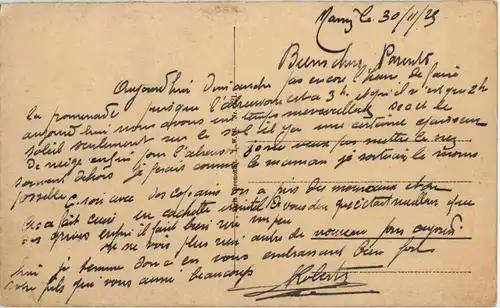 le 30/11/25
Bien chers Parents
Aujourd'hui Dimanche pas encore l'heure de faire
la promenade puisque l'abreuvoir est a 3 h. et qu'il n'est que 2 h
aujourd'hui nous avons un temps merveilleux sec et le
soleil seulement sur le sol il y a une certaine épaisseur
de neige enfin pour l'abreuvoir je ne veux pas mettre le nez
souvent dehors je ferais comme la maman je sortirai le moins
possible.
soir avec des copains on a pris les moineaux et on
a fait cuir en cachette vous dire que c'etait meilleur que
des grives enfin il faut bien rire un peu
Je ne vois plus rien autre de nouveau pour aujourd
hui je termine donc en vous embrassant bien fort
votre fils qui vous aime beaucoup
Robert